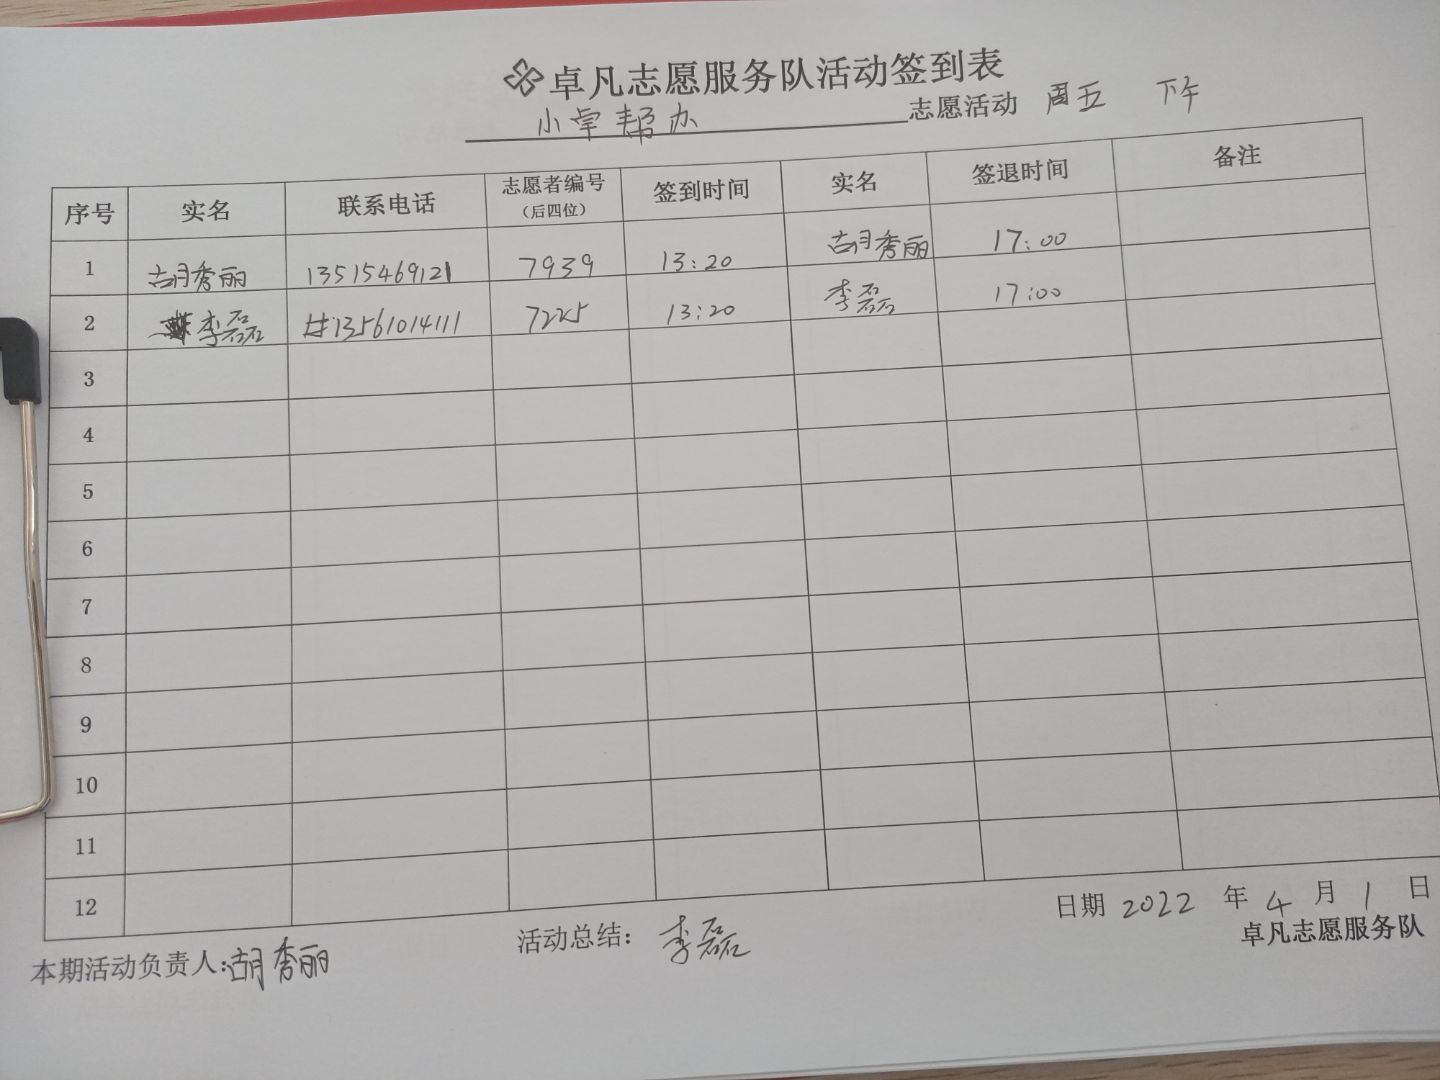 卓凡志愿服务队活动签到表
小卓帮办 志愿活动 周五 下午
序号 实名 联系电话 志愿者编号（后四位） 签到时间 实名 签退时间 备注
1 胡秀丽 13515469121 7939 13:20 胡秀丽 17:00
2 李磊 13561014111 7225 13:20 李磊 17:00
3
4
5
6
7
8
9
10
11
12
日期 2022 年 4 月 1 日
本期活动负责人:胡秀丽 活动总结：李磊 卓凡志愿服务队